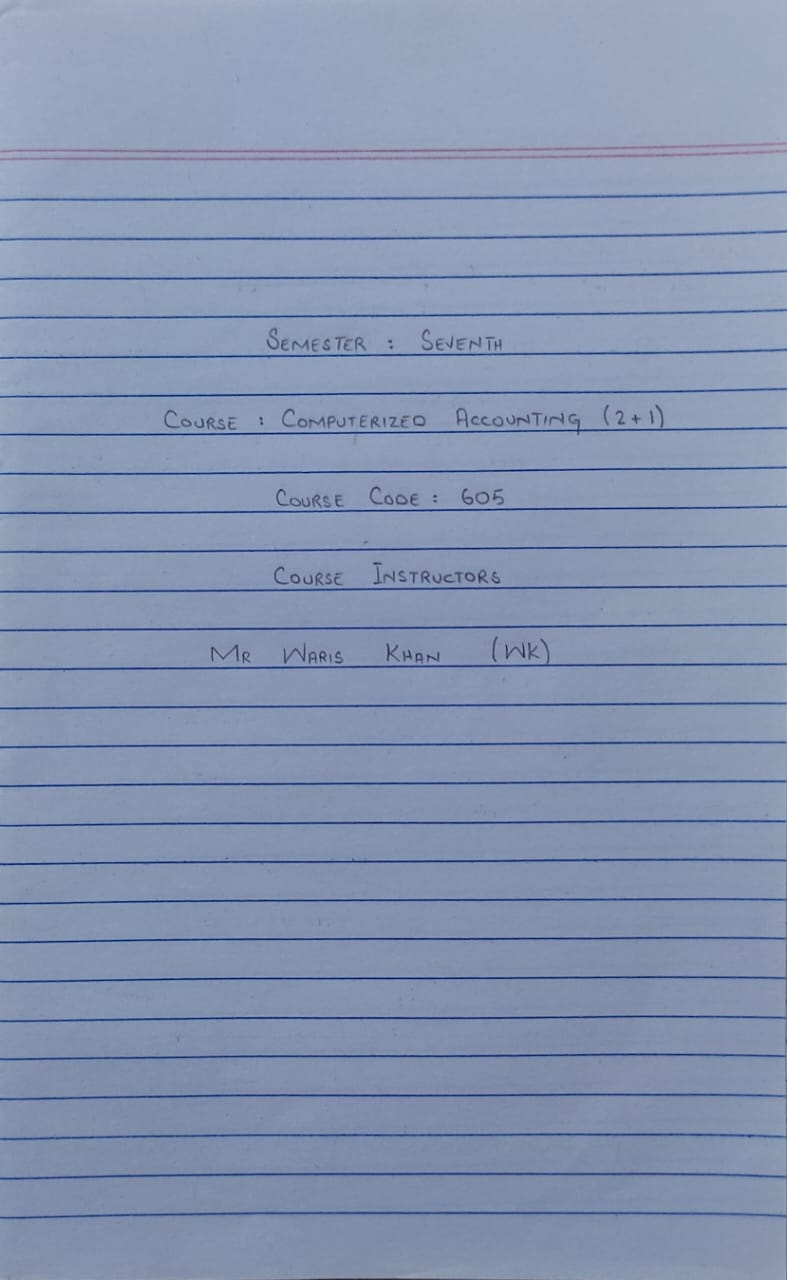 SEMESTER : SEVENTH
COURSE : COMPUTERIZED ACCOUNTING (2+1)
COURSE CODE : 605
COURSE INSTRUCTORS
MR WARIS KHAN (WK)